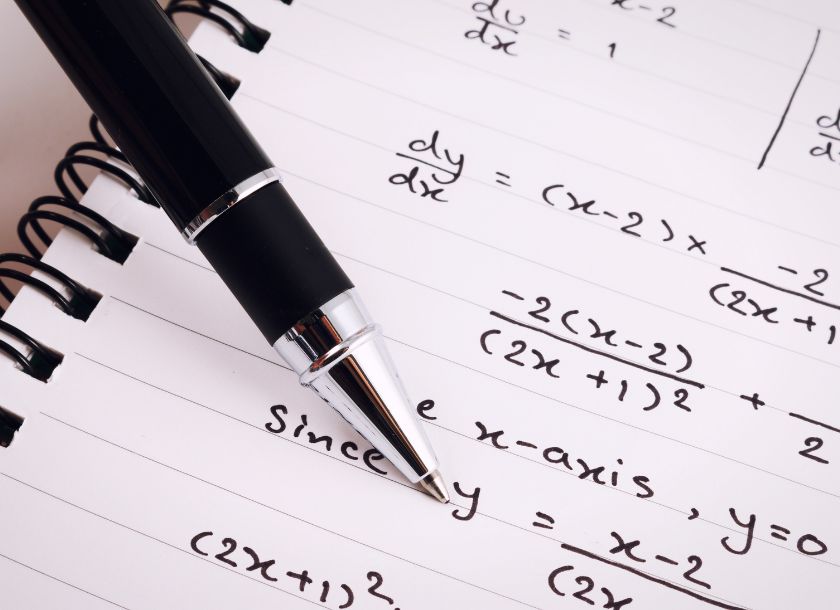 x-2
du/dx = 1
dy/dx = (x-2) × -2/(2x+1
-2(x-2)/(2x+1)² + /2
Since e x-axis, y=0
y = x-2/(2x
(2x+1)².